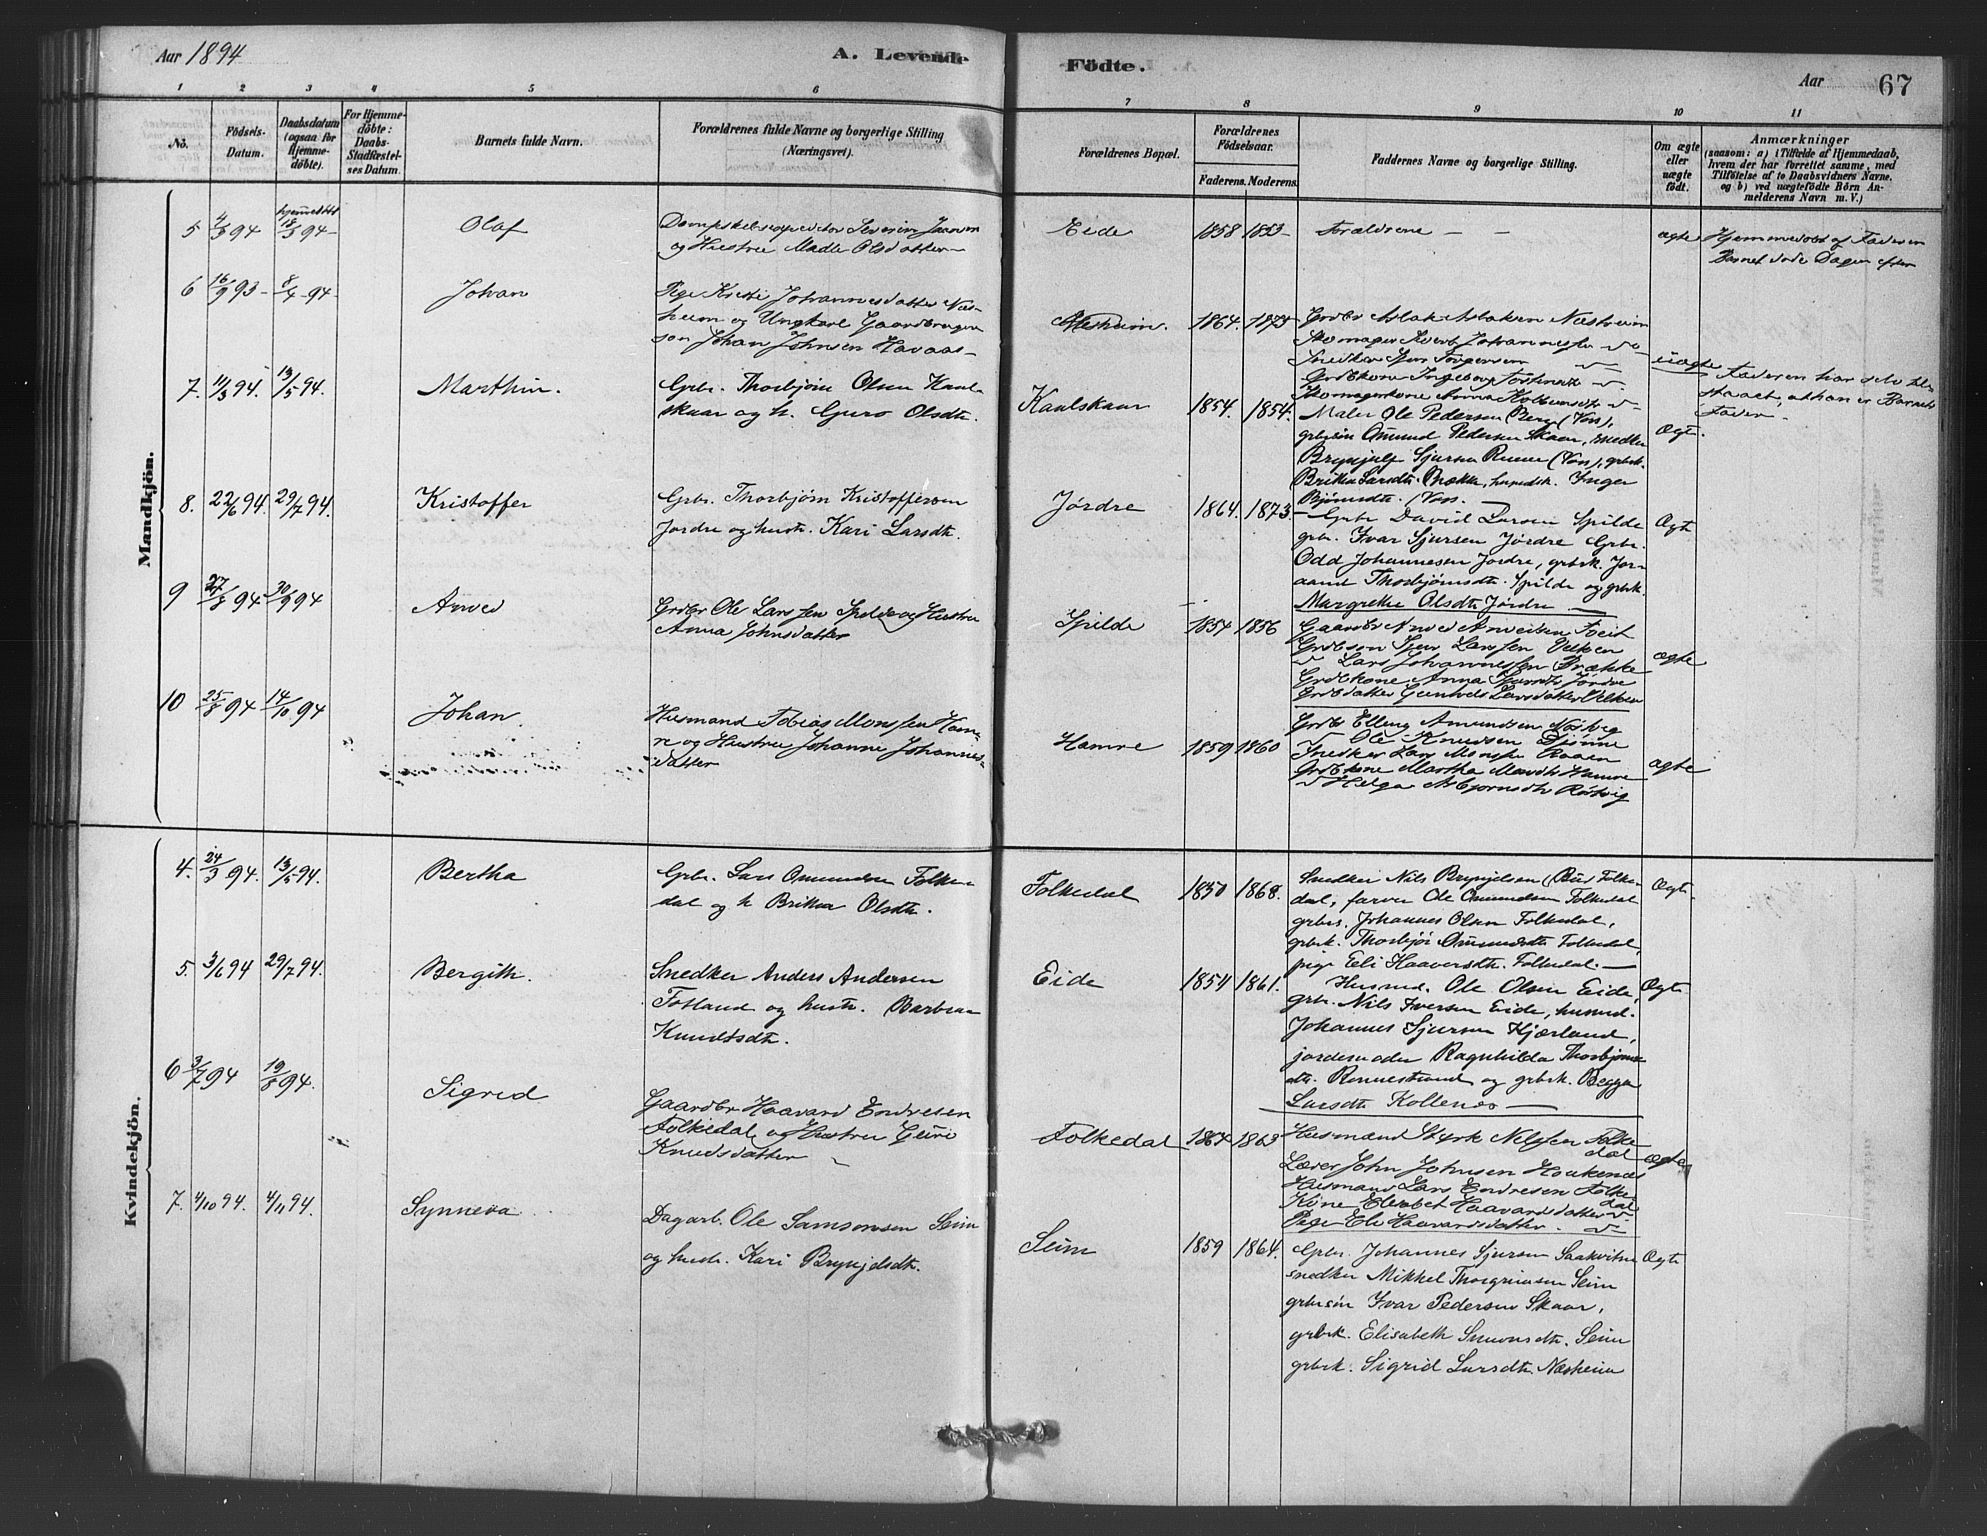 Aar 1894
A. Levende
Födte.
Aar
67
1 2 3 4 5 6 7 8 9 10 11
No.
Födsels-Datum.
Daabsdatum (ogsaa for Hjemmedöbte).
For Hjemmedöbte: Daabs-Stadfæstelses Datum.
Barnets fulde Navn.
Forældrenes fulde Navne og borgerlige Stilling (Næringsvei).
Forældrenes Bopæl.
Forældrenes Födselsaar.
Faderens. Moderens.
Faddernes Navne og borgerlige Stilling.
Om ægte eller uægte födt.
Anmærkninger
(saasom: a) i Tilfælde af Hjemmedaab,
hvem der har forrettet samme, med
Tilföielse af to Daabsvidners Navne,
og b) ved uægtefödte Börn An-
melderens Navn m. V.)
Mandkjön.
5 4/3 94 hjemmedöbt 18/3 94 - Olaf
Dampskibsexpeditør Severin Jansen
og Hustru Madle Olsdatter -
Eide 1858 1853 - Forældrene - - ægte
Hjemmedöbt af Faderen
Barnet döde Dagen efter
6 16/9 93 - 8/4 - 94 - Johan
Pige Kristi Johannesdatter Næs-
heim og Ungkarl Gaardbruger-
søn Johan Johnsen Havaas -
Næsheim. 1864. 1873
Grdbr Aslak Aslaksen Næsheim
Skomager Johannes
Snedker Torgersen
Grdbkone Ingeborg
Skomagerkone Anna
uægte
Faderen har selv til-
staaet, at han er Barnets
Fader -
7. 11/3 94. 13/5 94. Marthin.
Grbr. Thorbjörn Olsen Kaul-
skaar og h. Guro Olsdt.
Kaulskaar 1854. 1854.
Maler Ole Pedersen Berg (Voss),
grbrsön Omund Pedersen Skaar, snedker
Brynjulf Sjursen Rume (Voss), grbrk.
Britha Larsdt. Brække, Inger
Bjørnsdt. (Voss. -
Ægt.
8. 22/6 94. 29/7 94. Kristoffer
Grbr. Thorbjørn Kristoffersen
Jordre og hustr. Kari Larsdt.
Jørdre 1864. 1873.
- Grbr David Larsen Spilde
grbr. Ivar Sjursen Jørdre Grbr.
Odd Johannesen Jordre, grbrk. Jor-
aand Thorbjörnsdt. Spilde og grbrk.
Margrethe Olsdt Jordre -
Ægt
9 27/8 94 30/9 94 Arved
Grdbr Ole Larssen Spilde og Hustru
Anna Johnsdatter
Spilde 1854 1856
Gaardbr Arved Arveidsen Tveit
Grdbrsøn Sjur Larssen Velken
Lars Johannessen Brække
Grdbkone Anna Sjursdt Jørdre
Grdbdatter Gunhild Larsdatter Velken
ægte
10 25/8 94 14/10 94 Johan.
Husmand Tobias Monssen Ham-
re og Hustru Johanne Johannes-
datter
Hamre 1859 1860
Grdbr Elling Amundsen Røsvig
Ole Knudsen
Snedker Lars Monssen
Grdbkone Martha Hamre
Helga Asbjørnsdt Røsvig
ægte
Kvindekjön.
4. 24/3 94. 13/5 94. Bertha
Grbr. Lars Omundsen Folke-
dal og h Britha Olsdt.
Folkedal 1850 1868.
Snedker Nils Brynjelsen Folke-
dal, farver Ole Omundsen Folkedal
grbrs. Johannes Olsen Folkedal,
grbrk. Thorbjør Omundsdt. Folkedal,
pige Eli Haaversdt. Folkedal. -
Ægt.
5. 3/6 94 29/7 94. Bergith.
Snedker Anders Andersen
Fotland og hustr. Barbra
Knudtsdt.
Eide 1854 1861.
Husmd. Ole Olsen Eide,
grbr. Nils Iversen Eide, husmd.
Johannes Sjursen Kjærland,
jordemoder Ragnhilda Thorbjørns
dt. Ronnestrand og grbrk. Begga
Larsdt Kollenes -
Ægt.
6 3/7 94 19/8 94. Sigrid
Gaardbr Haavard Endresen
Folkedal og Hustru Guro
Knudsdatter
Folkedal 1864 1863
Husmand Styrk Nilssen Folke
dal
Lærer John Johnsen Haukenæs
Husmand Lars Endresen Folke
dal
Kone Elisabet Haavardsdatter
Pige Eli Haavardsdatter.
ægte
7. 4/10 94. 4/11 94. Synneva
Dagarb. Ole Samsonsen Seim
og hustr. Kari Brynjelsdt.
Seim 1859 1864.
Grbr. Johannes Sjursen Saakvitne
snedker Mikkel Thorgriusen Seim
grbrsön Ivar Pedersen Skaar,
grbrk. Elisabeth Simonsdt. Seim
grbrk. Sigrid Larsdt. Næsheim
Ægt